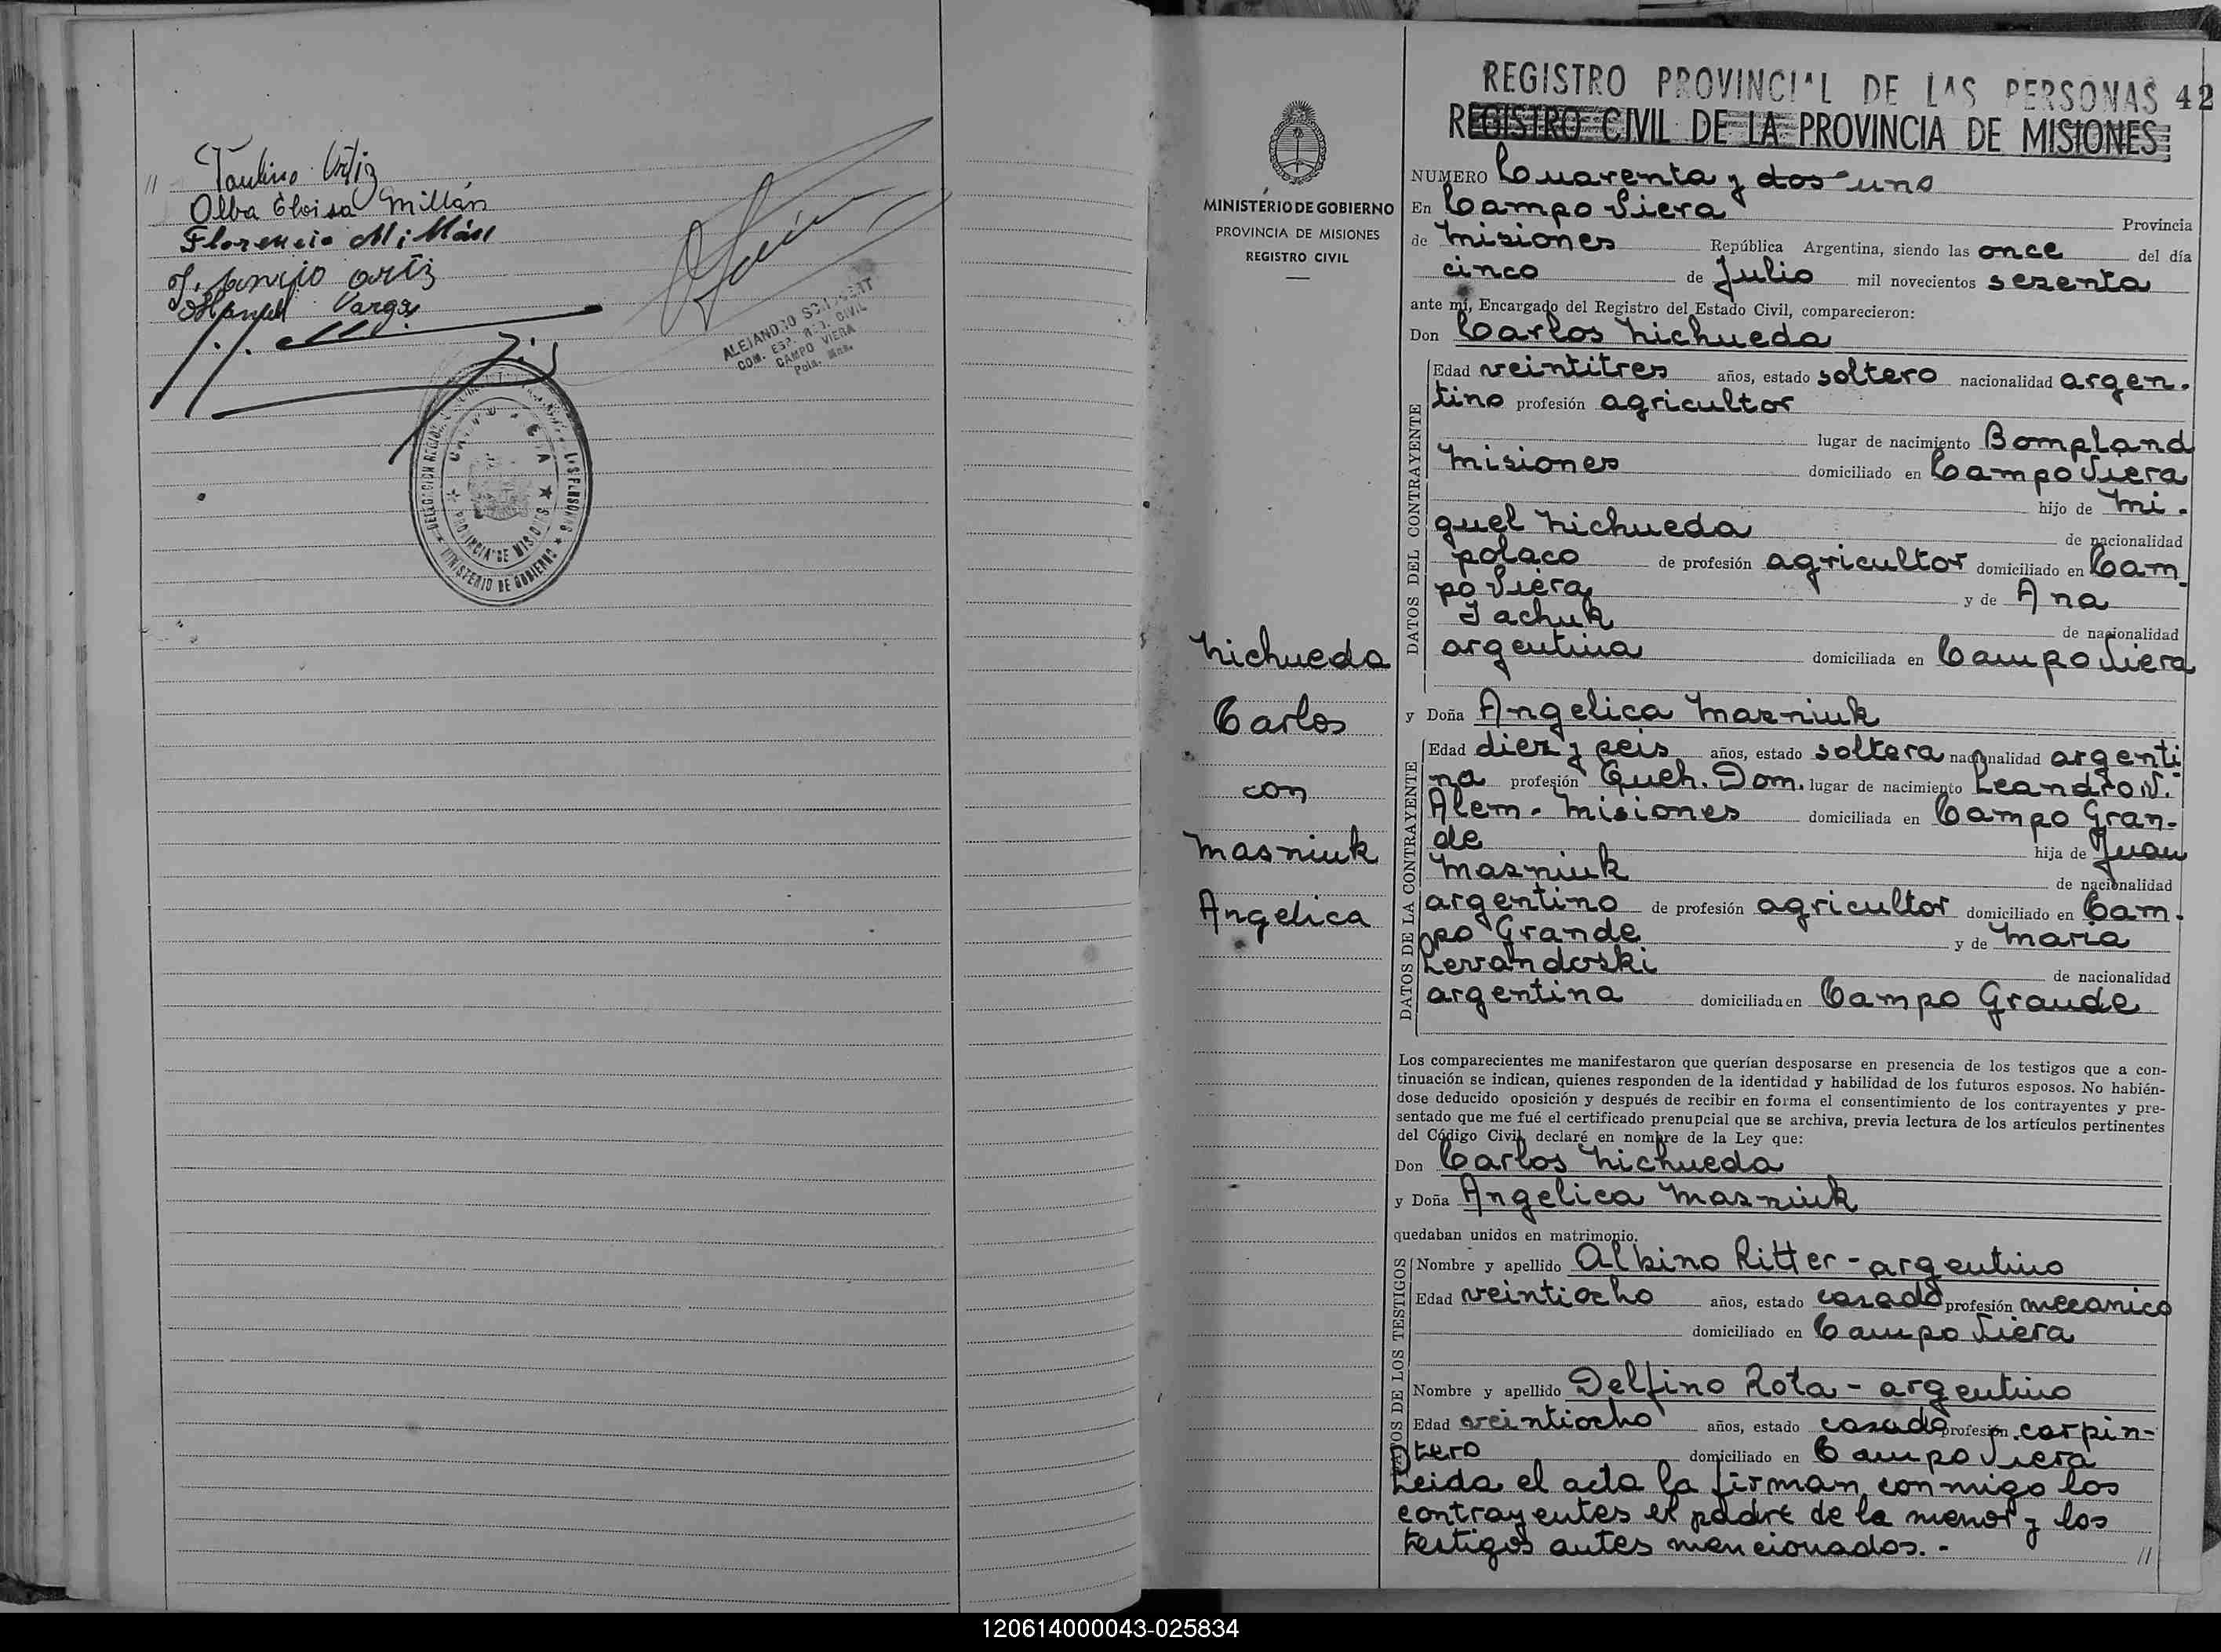 // Paulino Ortiz
Olba Eloisa Millán
Florencio Millán
ortiz
Manuel Vargas
ALEJANDRO
CAMPO VIERA
Pcia. Mns.
PROVINCIA DE MISIONES
MINISTERIO DE GOBIERNO
REGISTRO PROVINCIAL DE LAS PERSONAS 42
REGISTRO CIVIL DE LA PROVINCIA DE MISIONES
MINISTERIO DE GOBIERNO
PROVINCIA DE MISIONES
REGISTRO CIVIL
NUMERO Cuarenta y dos uno
En Campo Viera Provincia
de Misiones República Argentina, siendo las once del día
cinco de Julio mil novecientos sesenta
ante mí, Encargado del Registro del Estado Civil, comparecieron:
Don Carlos Lichueda
DATOS DEL CONTRAYENTE
Edad veintitres años, estado soltero nacionalidad argen-
tino profesión agricultor
lugar de nacimiento Bompland
Misiones domiciliado en Campo Viera
hijo de Mi-
guel Lichueda de nacionalidad
polaco de profesión agricultor domiciliado en Cam
po Viera y de Ana
Jachuk de nacionalidad
argentina domiciliada en Campo Viera
Lichueda
Carlos
con
Masniuk
Angelica
y Doña Angelica Masniuk
DATOS DE LA CONTRAYENTE
Edad diez y seis años, estado soltera nacionalidad argenti
na profesión Queh. Dom. lugar de nacimiento Leandro N.
Alem - Misiones domiciliada en Campo Gran-
de hija de Juan
Masniuk de nacionalidad
argentino de profesión agricultor domiciliado en Cam-
po Grande y de Maria
Levandoski de nacionalidad
argentina domiciliada en Campo Grande
Los comparecientes me manifestaron que querían desposarse en presencia de los testigos que a con-
tinuación se indican, quienes responden de la identidad y habilidad de los futuros esposos. No habién-
dose deducido oposición y después de recibir en forma el consentimiento de los contrayentes y pre-
sentado que me fué el certificado prenupcial que se archiva, previa lectura de los artículos pertinentes
del Código Civil, declaré en nombre de la Ley que:
Don Carlos Lichueda
y Doña Angelica Masniuk
quedaban unidos en matrimonio.
DATOS DE LOS TESTIGOS
Nombre y apellido Albino Ritter - argentino
Edad veintiocho años, estado casado profesión mecanico
domiciliado en Campo Viera
Nombre y apellido Delfino Rota - argentino
Edad veintiocho años, estado casado profesión carpin-
tero domiciliado en Campo Viera
Leida el acta la firman conmigo los
contrayentes el padre de la menor y los
testigos antes mencionados. - //
120614000043-025834